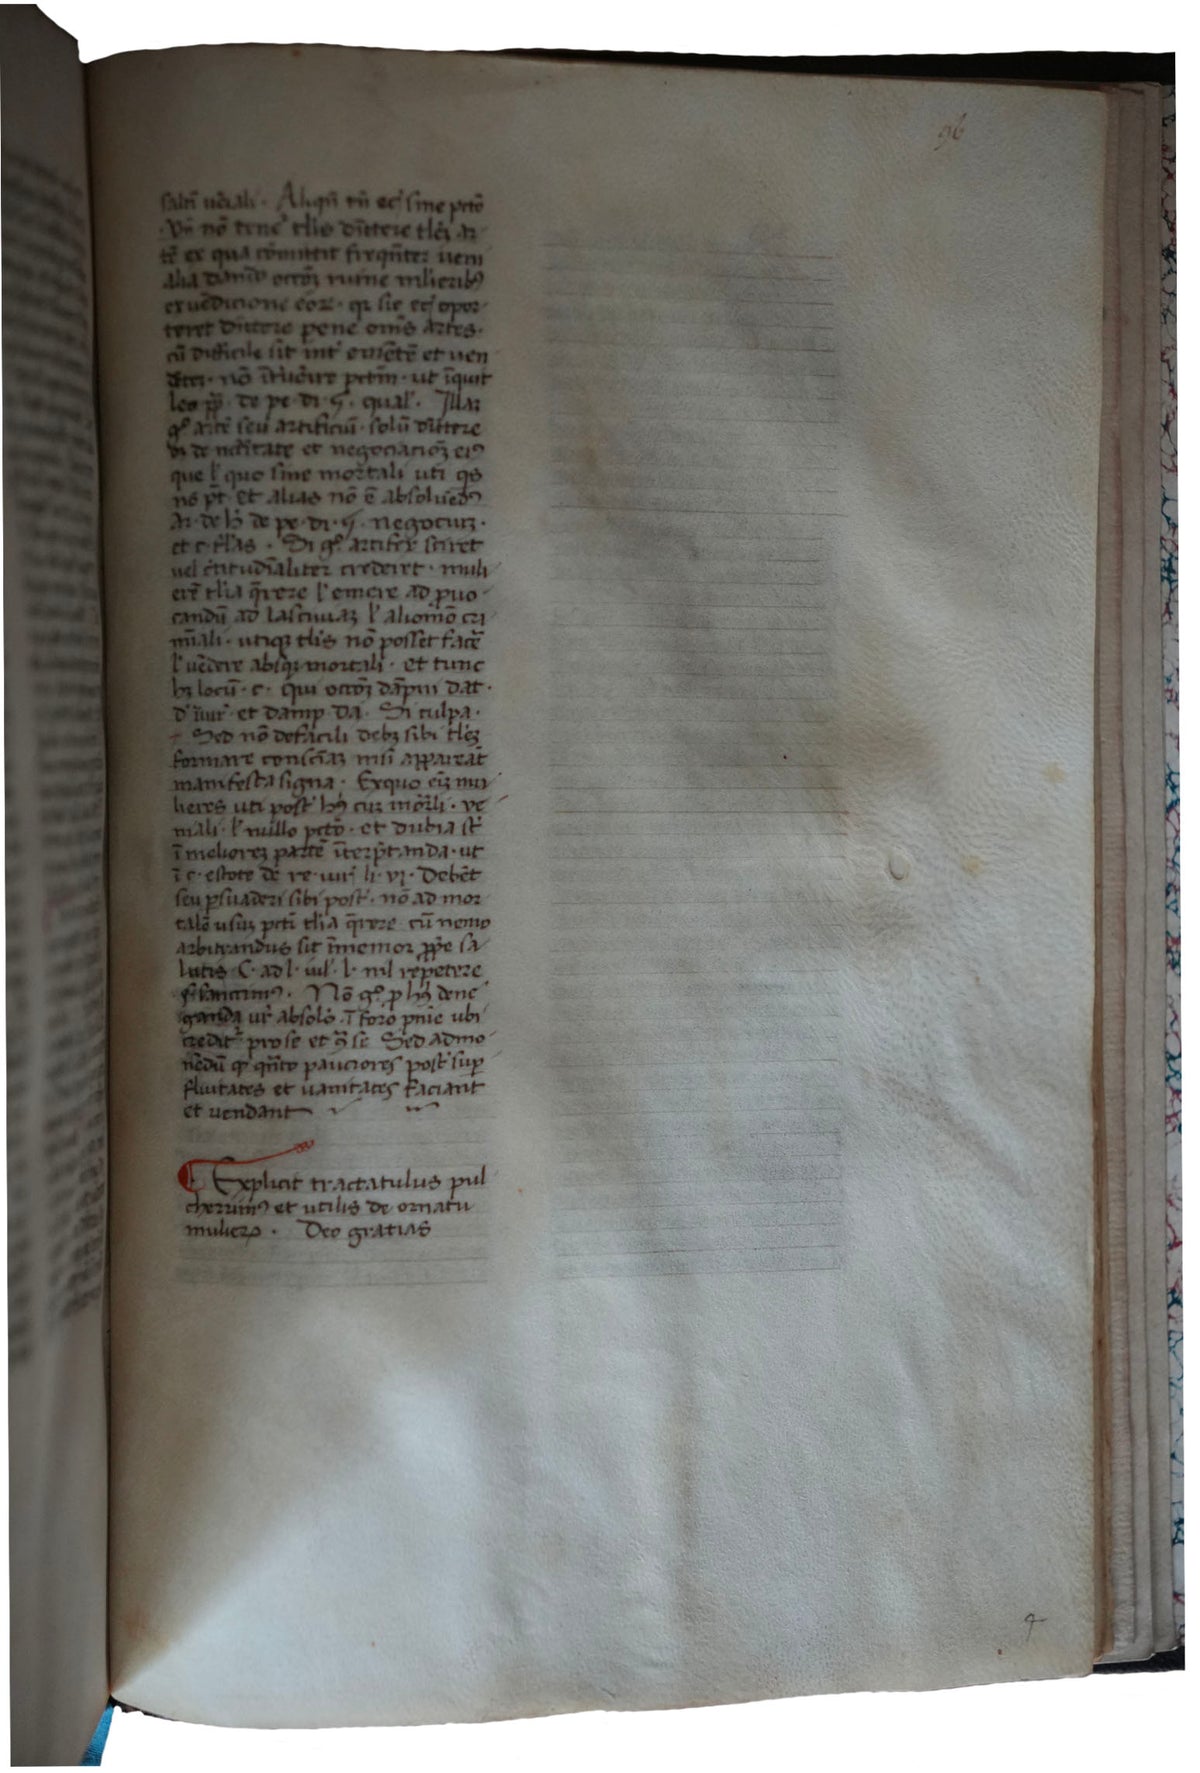 96
saltī uēiali. Aliqñ tñ ecī sine pctō
Vñ nō tenet' tlis dīttere tlē ar
tē ex qua cōmittit freqñter ueni
alia
ex uēdicione eor. qr sic ecī opor
teret dīttere pene omīs artes.
cū difficile sit int' emētē et uen
dētē. nō īteruēire pctm. ut īquit
leo pp̄. de pe. di. 5. qual'. Illar
g° artē seu artificiū. solū dīttere
et negociacioꝫ ei9
que l' quo sine mortali uti qs
nō pt. et alias nō ē absoluēd9
Ar. de h̄. de pe. di. 5. negocium.
et c. fl'as. Si g° artifex sciret
uel c̄titudīaliter crederet. muli
erē tlia q̄rere l' emere ad puo
candū ad lasciuiaꝫ l' aliomō cri
mīali. utiqꝫ tlis nō posset facē
l' uēdere absqꝫ mortali. et tunc
hꝫ locū. c. qui occoꝫ dāpni dat.
d' iīur' et damp. da. Si culpa.
Sed nō defacili debꝫ sibi tlēꝫ
formare consciaꝫ nisi appareāt
manifesta signa. Exquo eīꝫ mu
lieres uti post' hīj cuꝫ mōr̄li. ue
niali. l' nullo pctō. et dubia st'
ī meliorem partē īterp̄tanda. ut
ī c. estote de re. iur' li. vi. Debēt
seu p̄suaderi sibi post'. nō ad mor
talē usuꝫ pcti tlia q̄rere cū nemo
arbitrandus sit īmemor pp̄e sa
lutis C. ad l. iul'. l. nil repetere
Nō g° p hīj dene
ganda ur' absolō. ī foro pn̄ie ubi
credit' pro se et 9̄ se Sed admo
nēdū q̄ q̄nto pauciores post' sup
fluitates et uanitates faciant
et vendant
Explicit tractatulus pul
cherrim9 et utilis de ornatu
mulieꝝ. Deo gratias